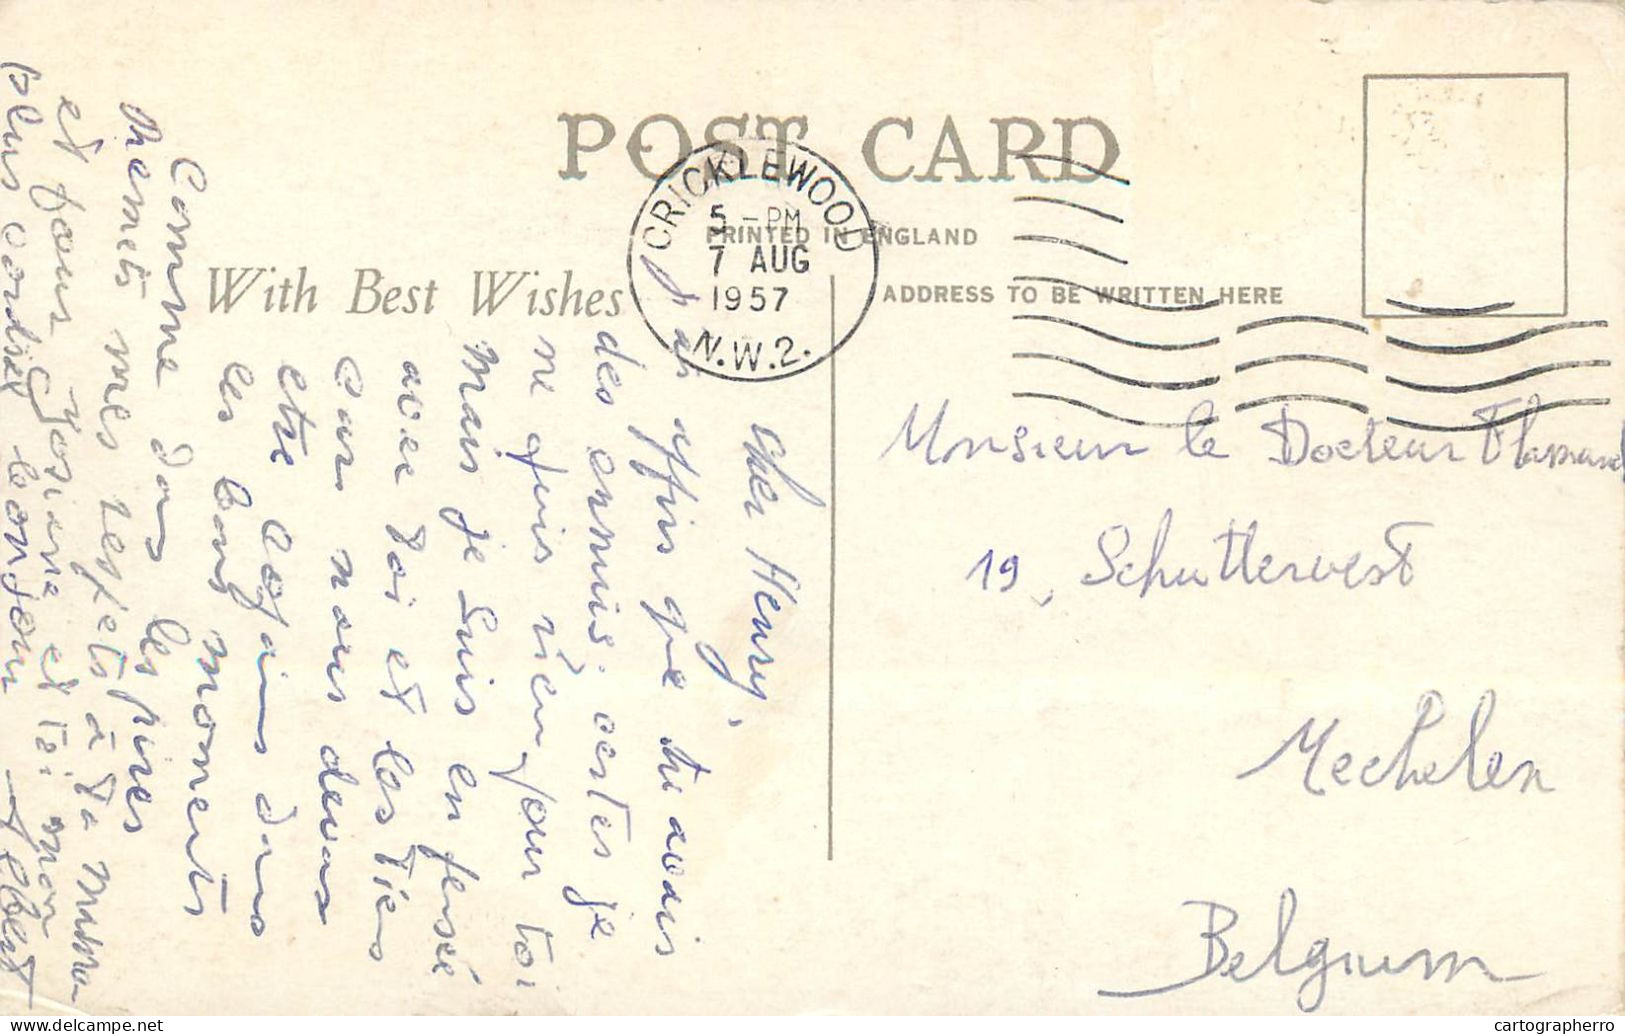 POST CARD
PRINTED IN ENGLAND
With Best Wishes
ADDRESS TO BE WRITTEN HERE
CRICKLEWOOD
5 - PM
7 AUG
1957
N.W.2.
Cher Henry,
J'ai appris que tu avais
des ennuis. certes je
ne puis rien pour toi
Mais je suis en pensée
avec toi et les tiens
car nous devons
etre copains dans
les bons moments
Comme dans les pires
Remets mes respects à ta maman
et pour Josiane et toi mon
plus cordial bonjour
Monsieur le Docteur Flamand
19, Schuttervest
Mechelen
Belgium
delcampe.net
cartographerro